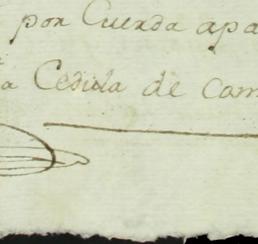 por Cuerda apa
a Cedula de cam